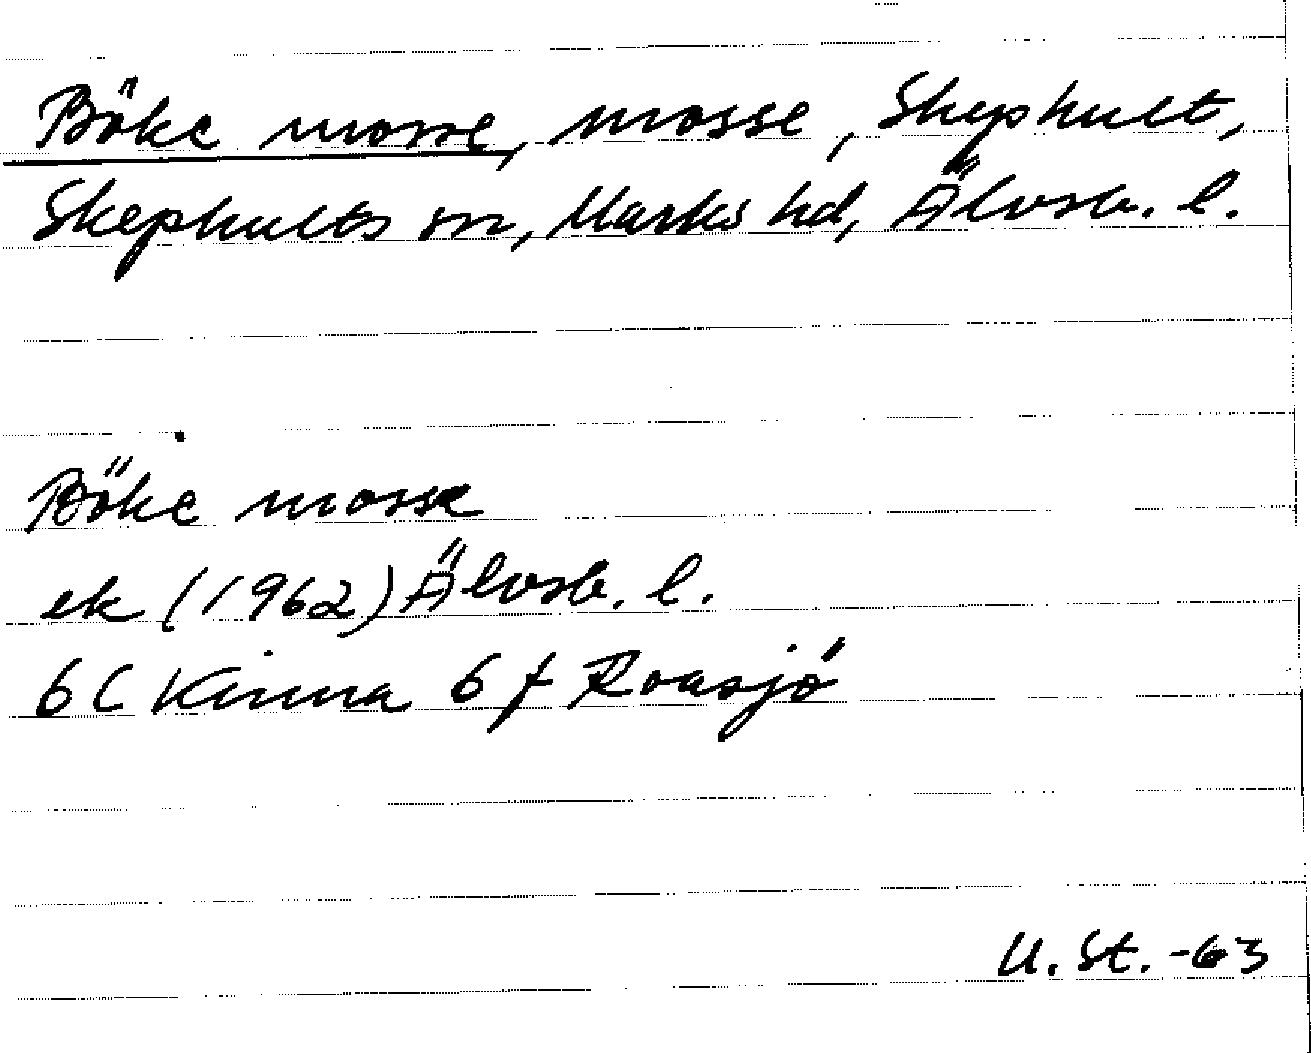 Böke mosse, mosse, Skephult,
Skephults sn, Marks hd, Älvsb. l.
Böke mosse
ek (1962) Älvsb. l.
6C Kinna 6f Roasjö
U. St. -63